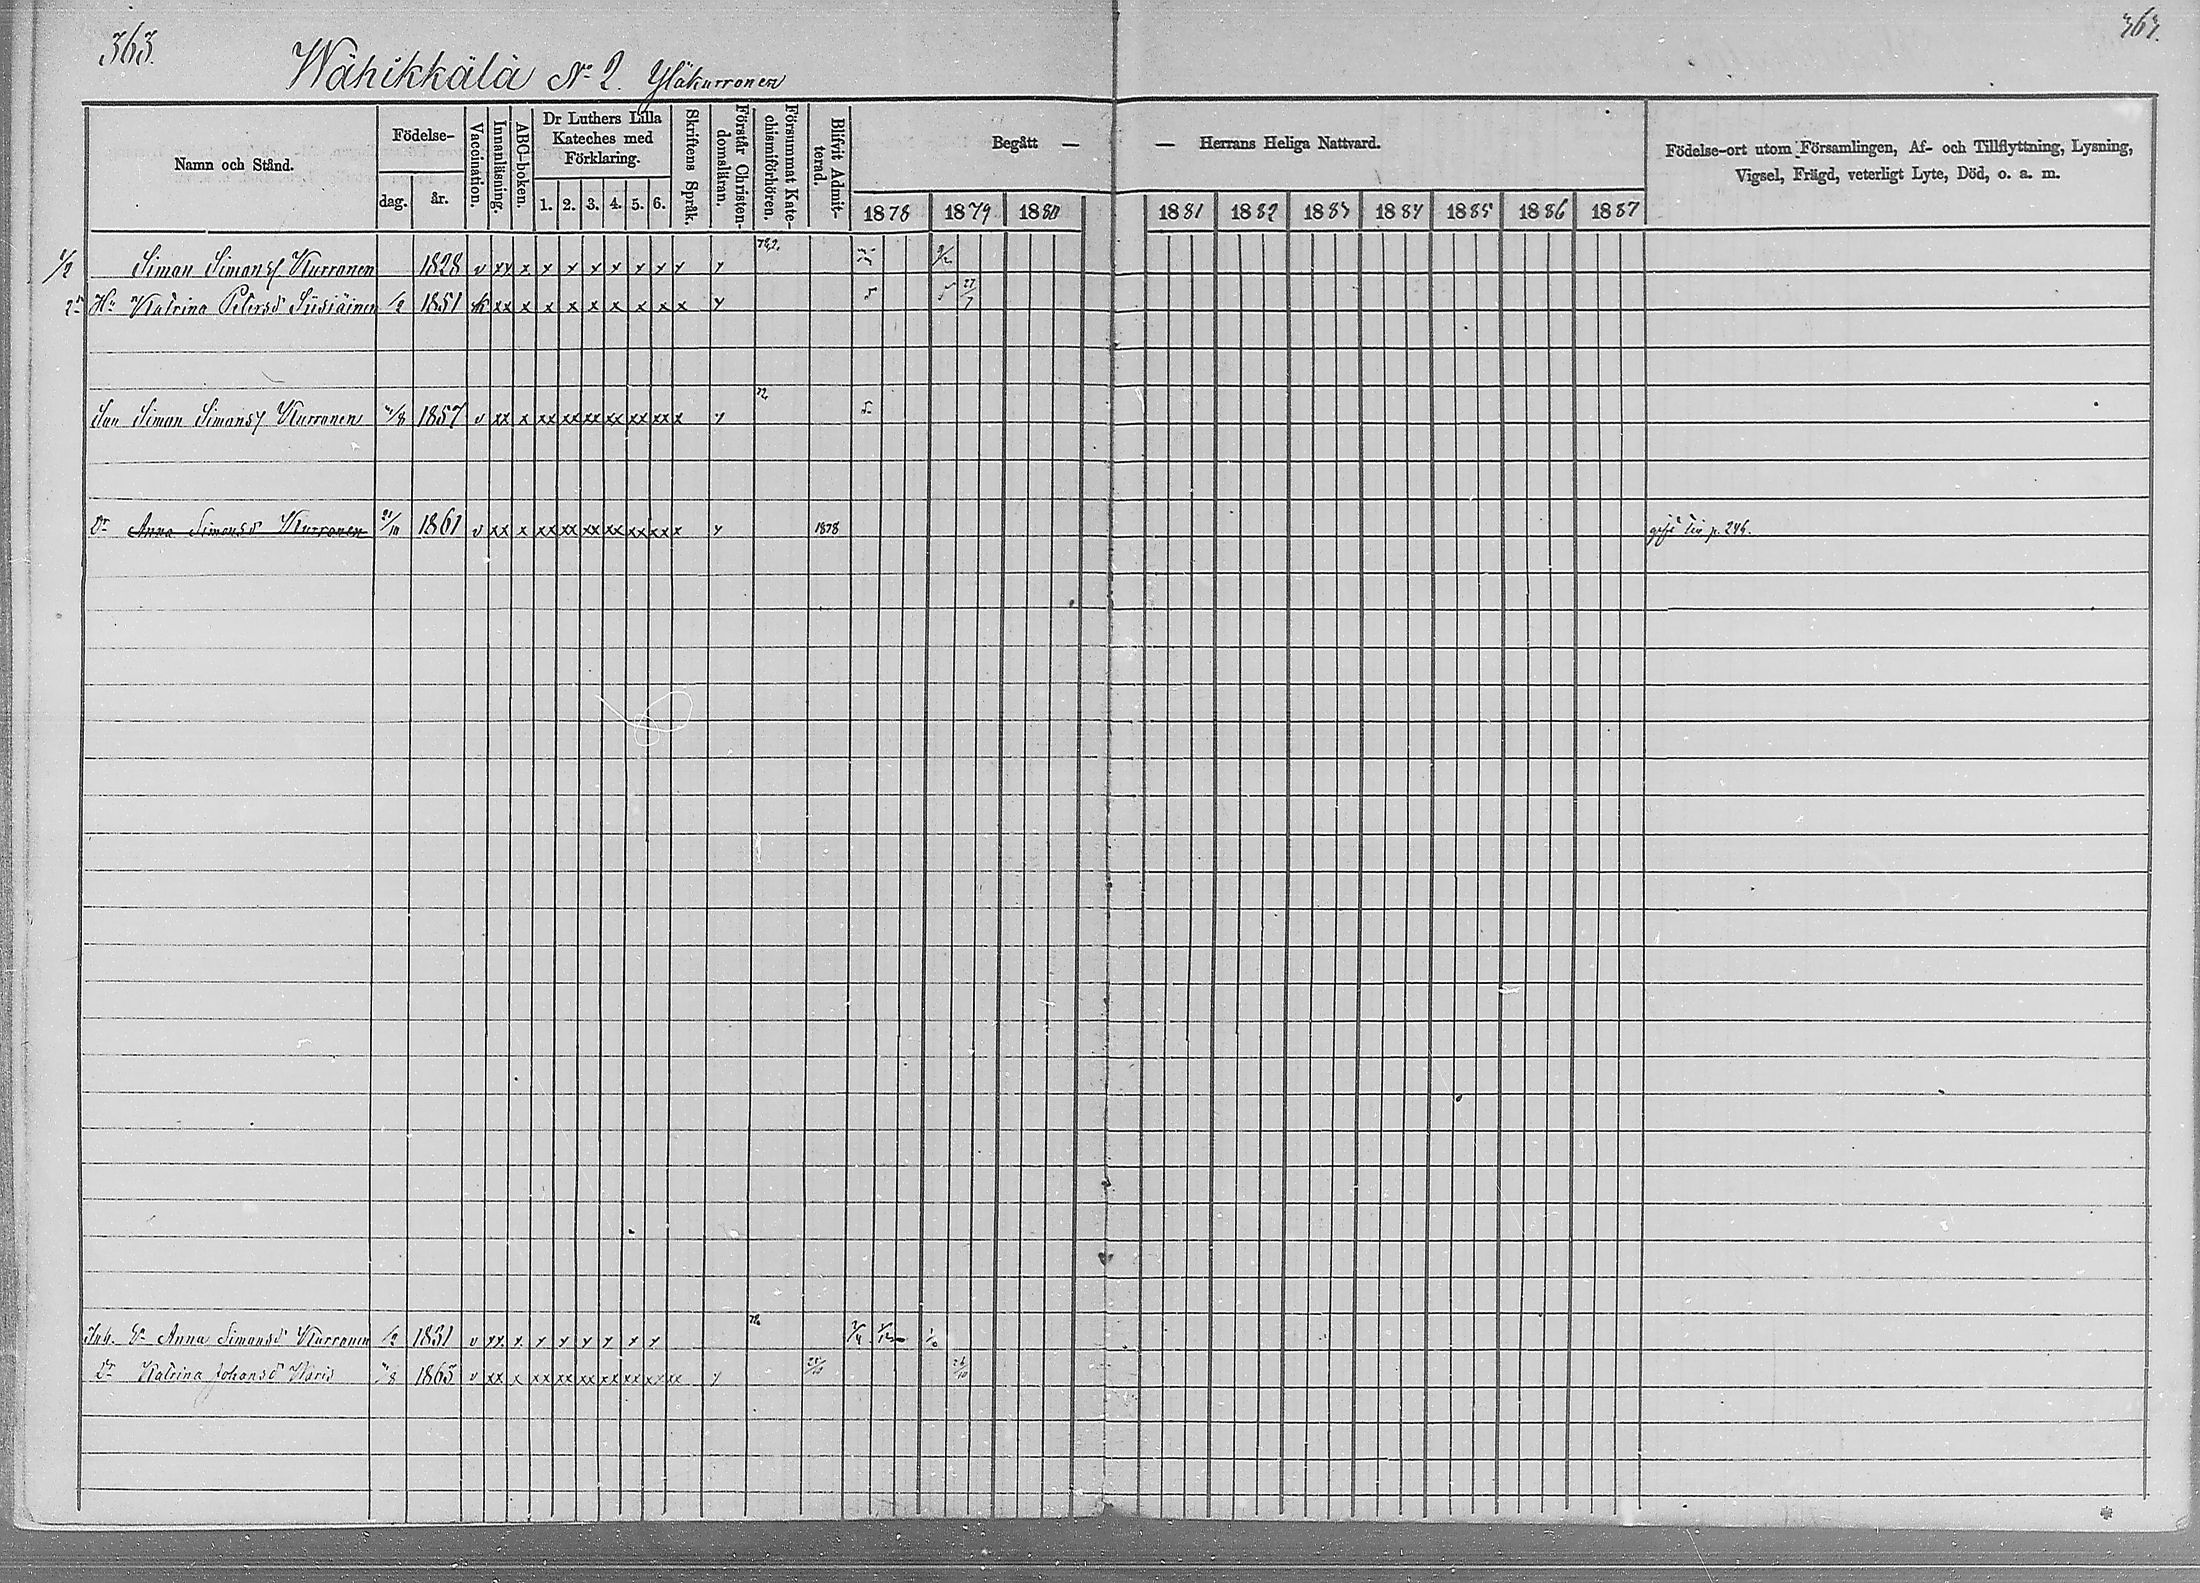 363.
363.
Wähikkälä No 2. Yläkurronen
Namn och Stånd.
Födelse-
dag. år.
Vaccination.
Innanläsning.
ABC-boken.
Dr Luthers Lilla Kateches med Förklaring.
1. 2. 3. 4. 5. 6.
Skriftens Språk.
Förstår Christendomsläran.
Försummat Katechismiförhören.
Blifvit Admitterad.
Begått — — Herrans Heliga Nattvard.
1878 1879 1880 1881 1882 1883 1884 1885 1886 1887
Födelse-ort utom Församlingen, Af- och Tillflyttning, Lysning,
Vigsel, Frägd, veterligt Lyte, Död, o. a. m.
1/2 Simon Simons Kurronen 1828 v xx x x x x x x x x y
Hu Katrina Petersd Siisiäinen 1/2 1851 xx x x x x x x x x y
Son Simon Simons Kurronen 1857 v xx x xx xx xx xx xx xx x y
Dr Anna Simonsd Kurronen 21/10 1861 v xx x xx xx xx xx xx xx x y 1878 p. 246.
Inh. Anna Simonsd Kurronen 1/2 1831 v xx. x. x x x x x x
Dr Katrina Johansd 1863 v xx x xx xx xx xx xx xx xx y 26/10